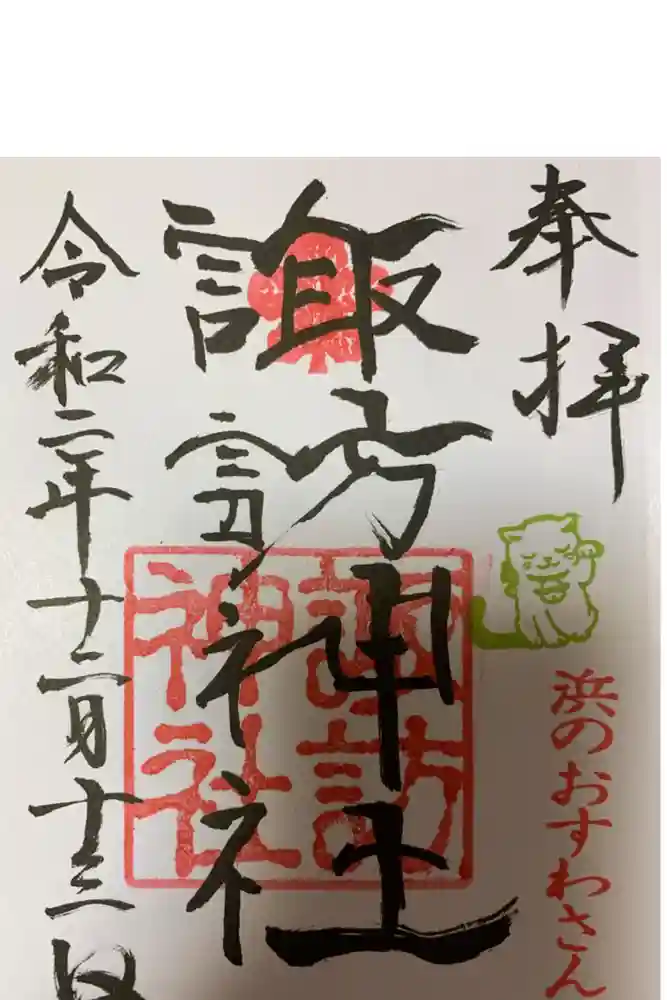 奉拝
浜のおすわさん
諏訪神社
諏訪
神社
令和二年十二月十三日